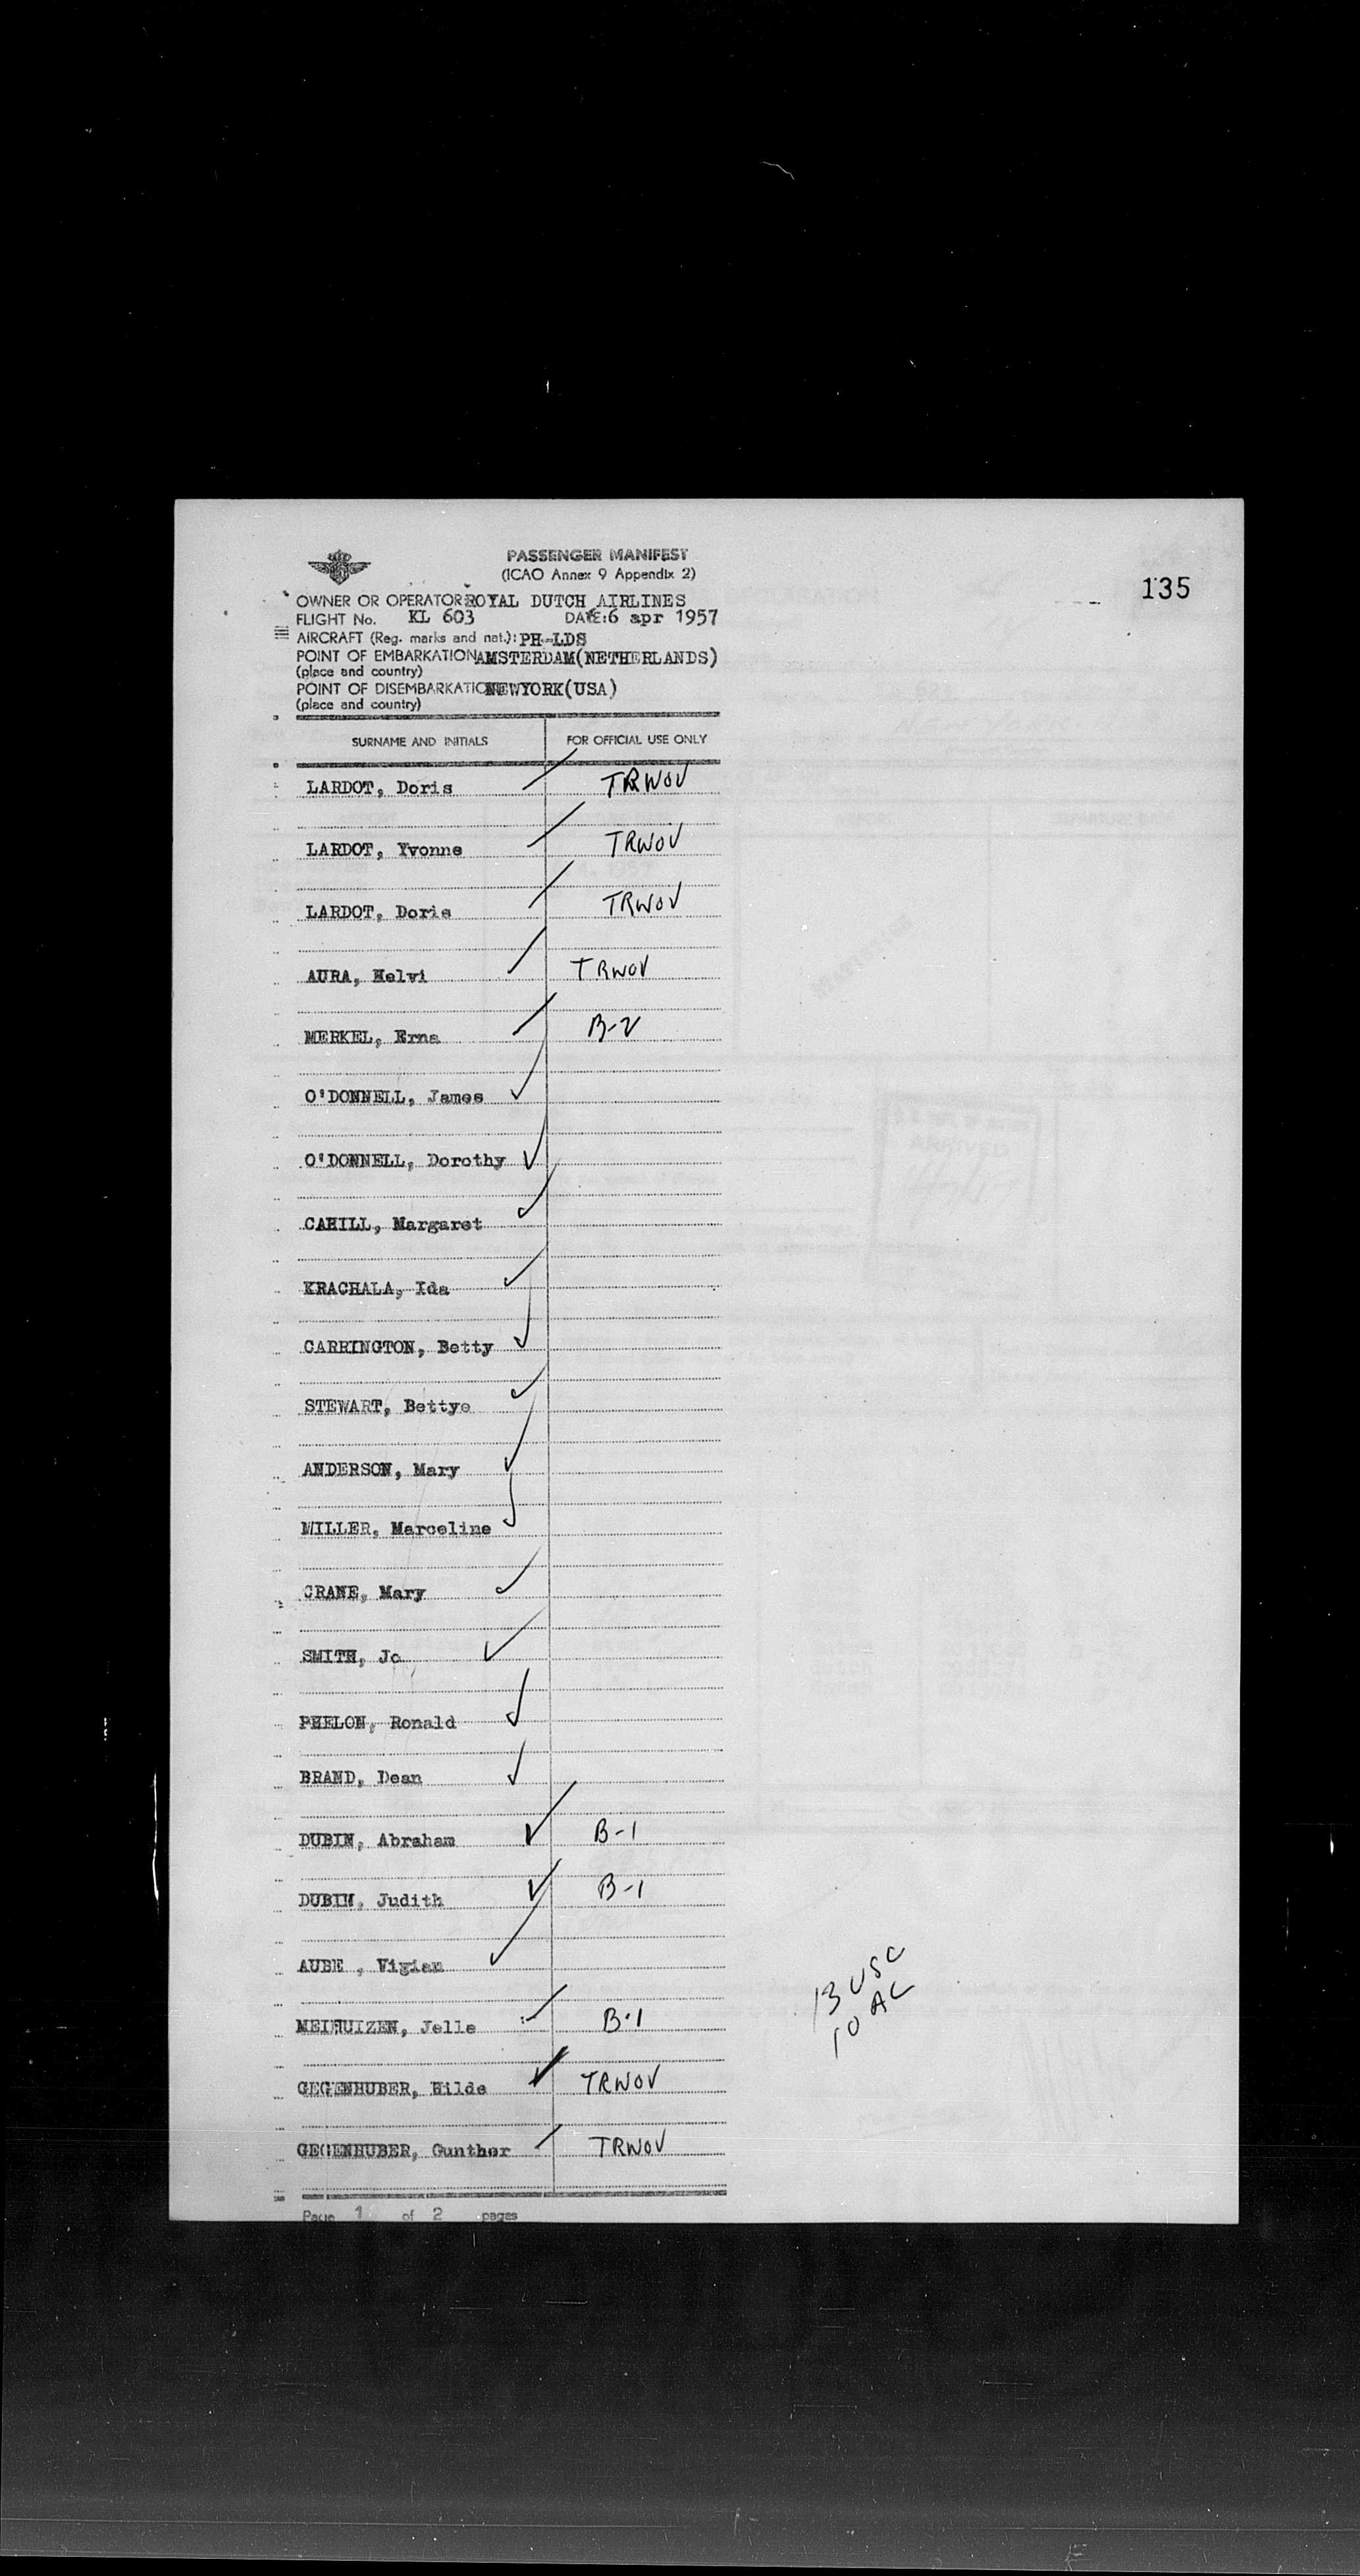 PASSENGER MANIFEST
(ICAO Annex 9 Appendix 2)
135
OWNER OR OPERATOR ROYAL DUTCH AIRLINES
FLIGHT No. KL 603 DATE: 6 apr 1957
AIRCRAFT (Reg. marks and nat.): PH-LDS
POINT OF EMBARKATION AMSTERDAM(NETHERLANDS)
(place and country)
POINT OF DISEMBARKATION NEWYORK(USA)
(place and country)
SURNAME AND INITIALS FOR OFFICIAL USE ONLY
LARDOT, Doris TRWOV
LARDOT, Yvonne TRWOV
LARDOT, Doris TRWOV
AURA, Helvi TRWOV
MERKEL, Erna B-2
O'DONNELL, James
O'DONNELL, Dorothy
CAHILL, Margaret
KRACHALA, Ida
CARRINGTON, Betty
STEWART, Bettye
ANDERSON, Mary
MILLER, Marceline
CRANE, Mary
SMITH, Jo
PHELON, Ronald
BRAND, Dean
DUBIN, Abraham B-1
DUBIN, Judith B-1
AUBE , Vigian
MEIHUIZEN, Jelle B-1
GEGENHUBER, Hilde TRWOV
GEGENHUBER, Gunther TRWOV
13 USC
10 AC
Page 1 of 2 pages